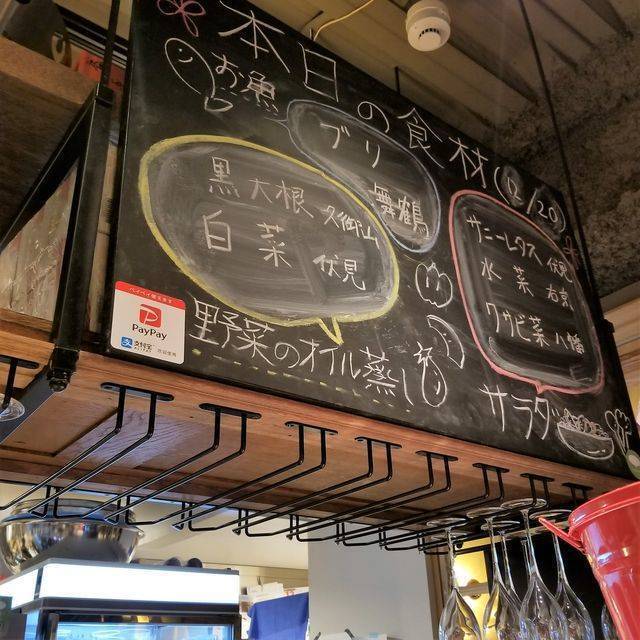 本日の食材(12/20)
お魚
ブリ
舞鶴
黒大根 久御山
白菜 伏見
サニーレタス 伏見
水菜 右京
ワサビ菜 八幡
野菜のオイル蒸し
サラダ
ペイペイ使えます
PayPay
支付宝